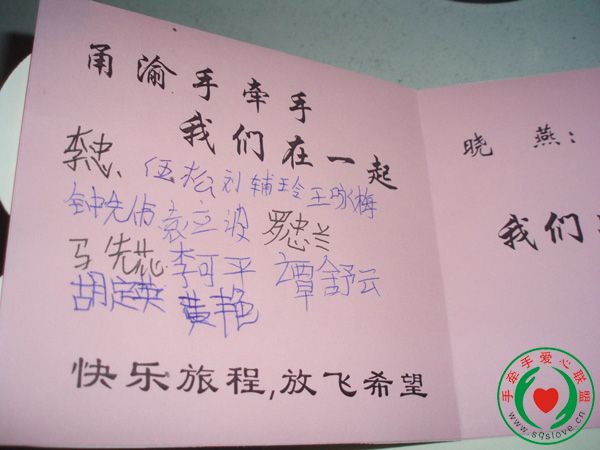 甬渝手牵手
我们在一起
李忠 伍松 刘辅玲 王咏梅
袁立波 罗忠兰
马先蕊 李可平 谭舒云
胡定英 黄艳
快乐旅程,放飞希望
晓燕:
我们
手牵手爱心联盟
www.sqslove.cn